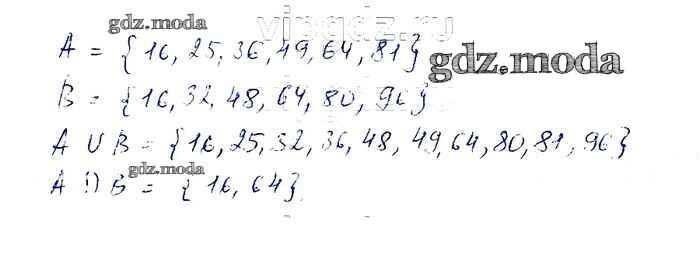 vipgdz.ru
gdz.moda
A = {16, 25, 36, 49, 64, 81}
gdz.moda
B = {16, 32, 48, 64, 80, 96}
A ∪ B = {16, 25, 32, 36, 48, 49, 64, 80, 81, 96}
gdz.moda
A ∩ B = {16, 64}